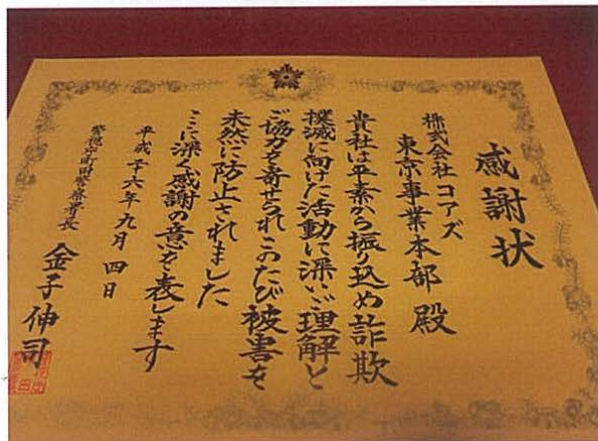 感謝状
株式会社 コアズ
東京事業本部 殿
貴社は平素から振り込め詐欺
撲滅に向けた活動に深いご理解と
ご協力を寄せられこのたび被害を
未然に防止されました
ここに深く感謝の意を表します
平成二十六年九月四日
警視庁町田警察署長
金子伸司